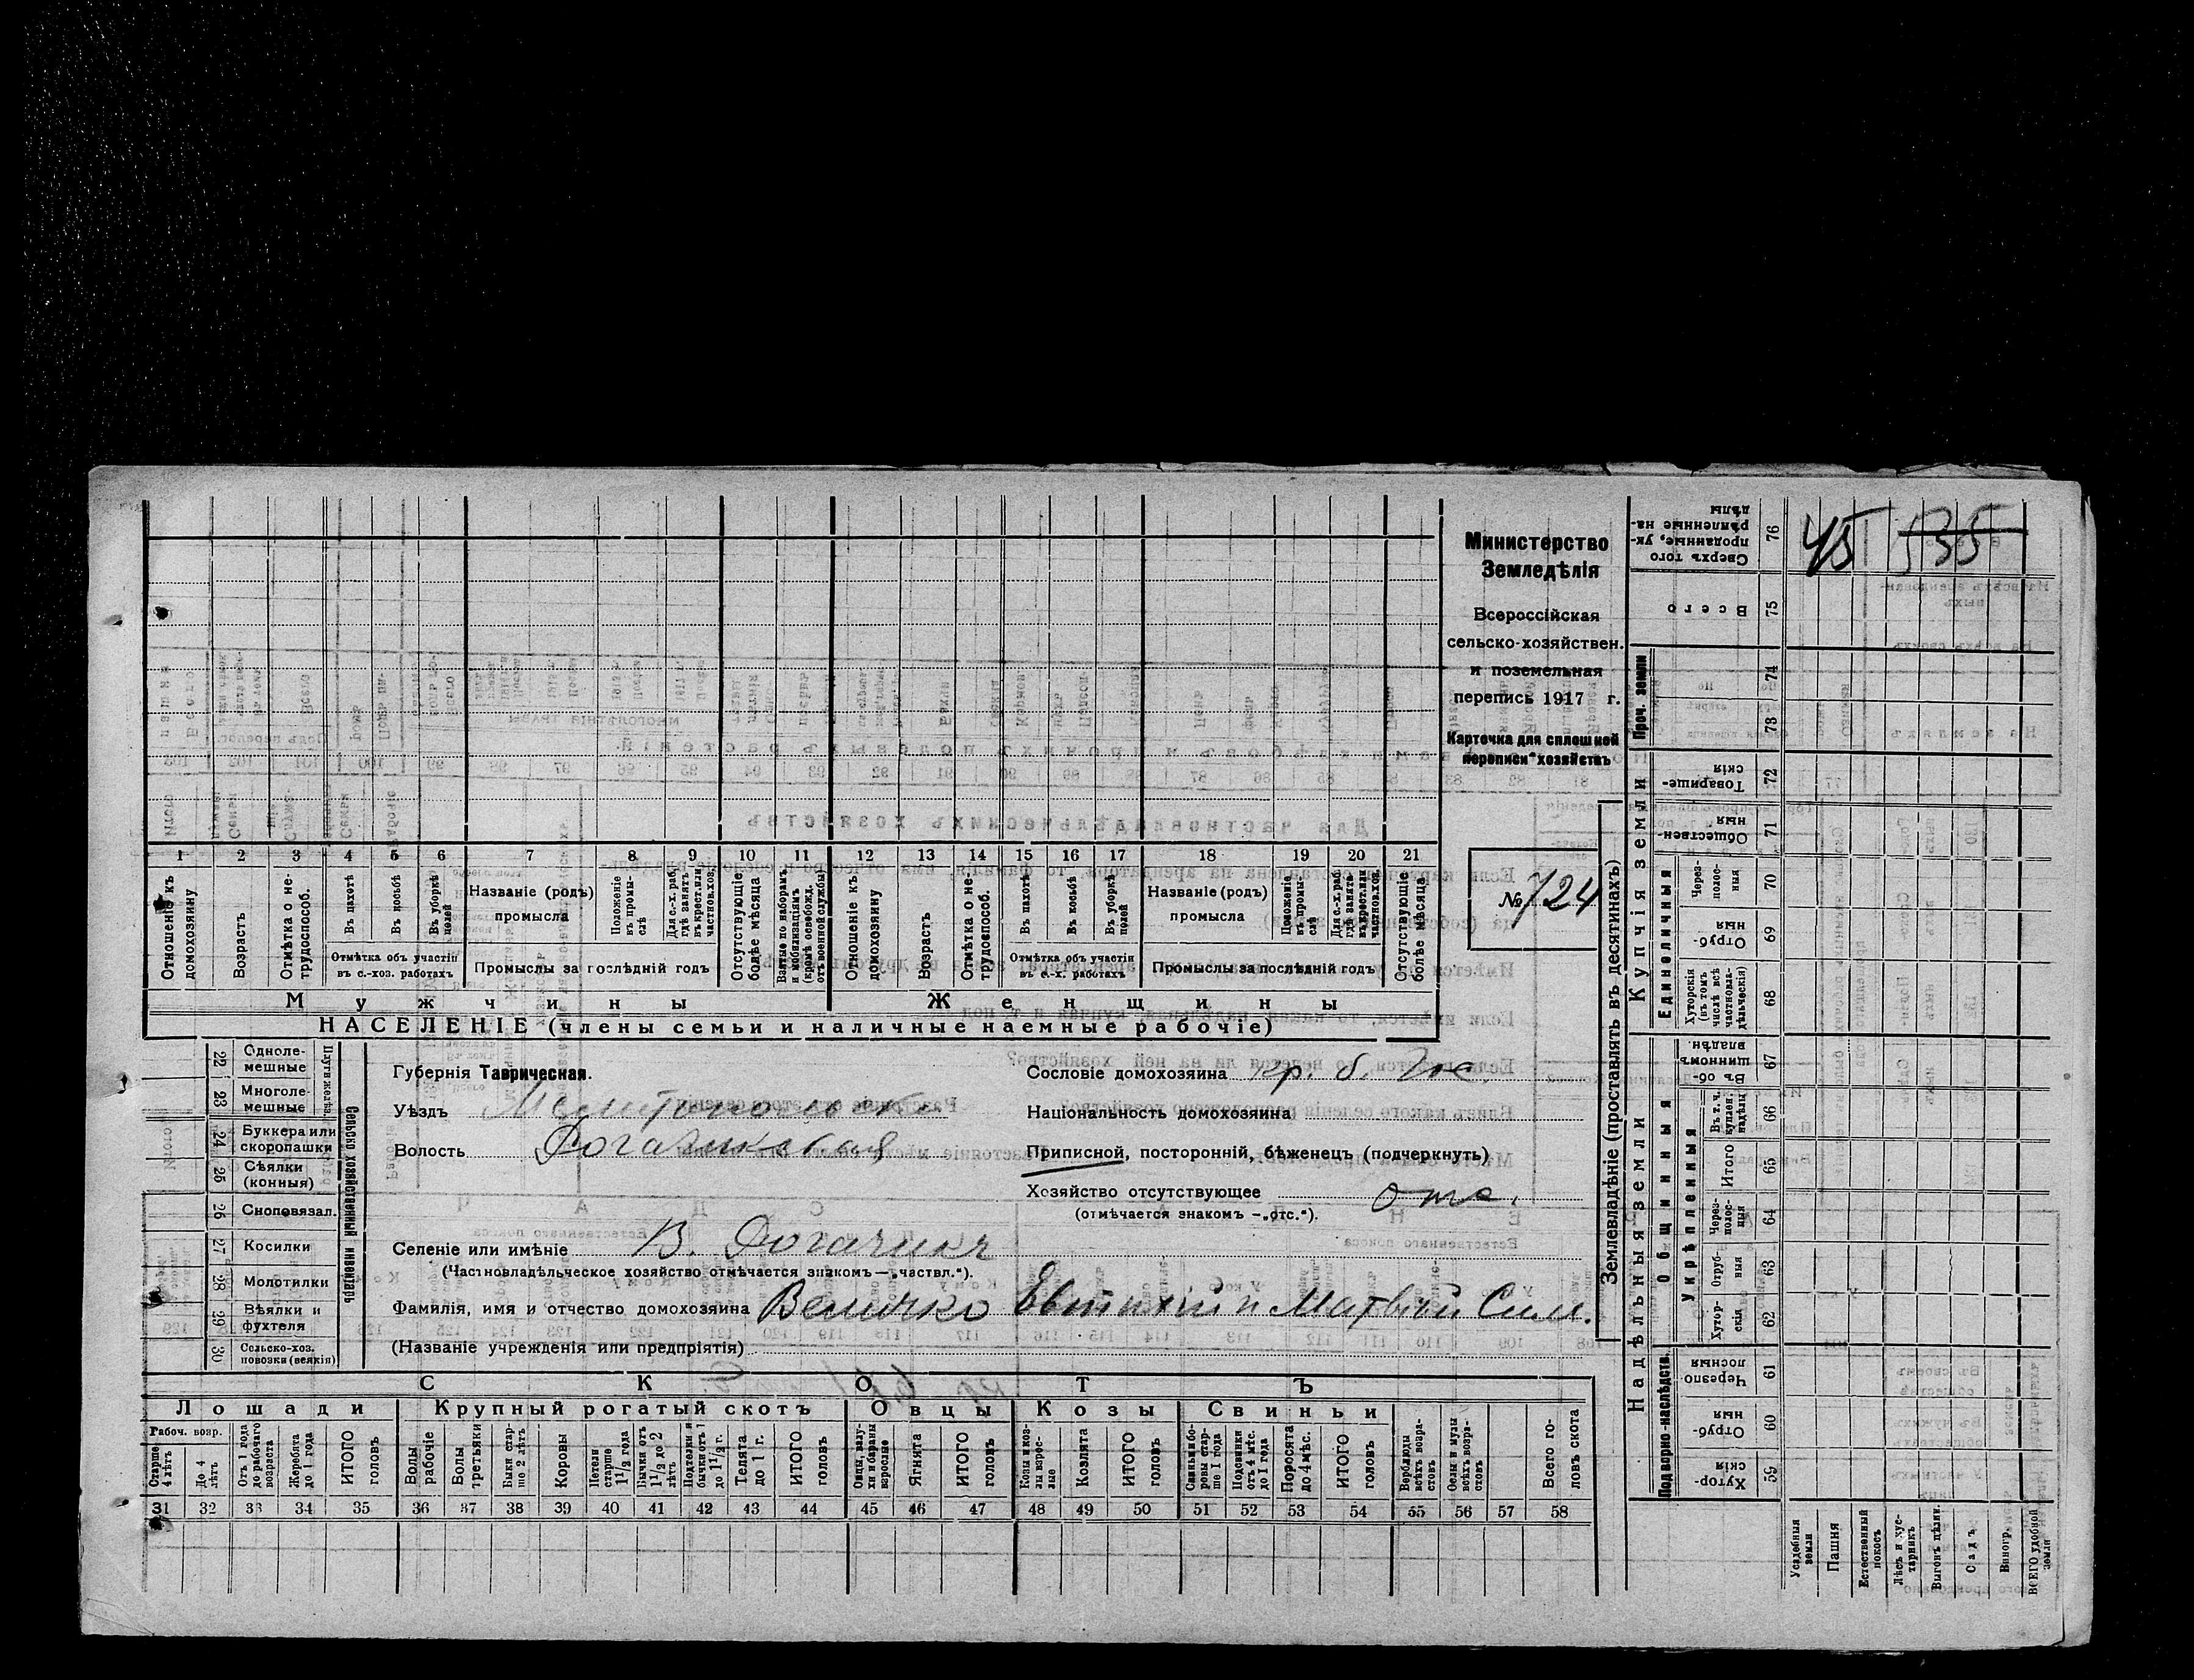 Министерство
Земледѣлія
Всероссійская
сельско-хозяйствен.
и поземельная
перепись 1917 г.
Карточка для сплошной
переписи хозяйствъ
№ 724
45 535
1 2 3 4 5 6 7 8 9 10 11 12 13 14 15 16 17 18 19 20 21
Отношеніе къ домохозяину
Возрастъ
Отмѣтка о не-трудоспособ.
Въ пахотѣ
Въ косьбѣ
Въ уборкѣ полей
Отмѣтка объ участіи въ с.-хоз. работахъ
Названіе (родъ) промысла
Положеніе въ промы-слѣ
Для с.-х. раб. гдѣ занятъ въ крест. или частнов. хоз.
Промыслы за послѣдній годъ
Отсутствующіе болѣе мѣсяца
Взятые по наборамъ и мобилизаціямъ (кромѣ освобожд. отъ военной службы)
Отношеніе къ домохозяину
Возрастъ
Отмѣтка о не-трудоспособ.
Въ пахотѣ
Въ косьбѣ
Въ уборкѣ полей
Отмѣтка объ участіи въ с.-х. работахъ
Названіе (родъ) промысла
Положеніе въ промы-слѣ
Для с.-х. раб. гдѣ занята въ крест. или частнов. хоз.
Промыслы за послѣдній годъ
Отсутствующіе болѣе мѣсяца
Мужчины Женщины
НАСЕЛЕНІЕ (члены семьи и наличные наемные рабочіе)
22 Одноле-мешные
23 Многоле-мешные
24 Буккера или скоропашки
25 Сѣялки (конныя)
26 Сноповязал.
27 Косилки
28 Молотилки
29 Вѣялки и фухтеля
30 Сельско-хоз. повозки (всякія)
Сельско хозяйственный инвентарь
Губернія Таврическая.
Уѣздъ Мелитопольскій
Волость Рогачикская
Сословіе домохозяина кр. б.
Національность домохозяина
Приписной, посторонній, бѣженецъ (подчеркнуть)
Хозяйство отсутствующее отс.
(отмѣчается знакомъ —„отс.“).
Селеніе или имѣніе В. Рогачикъ
(Частновладѣльческое хозяйство отмѣчается знакомъ—„частвл.“).
Фамилія, имя и отчество домохозяина Величко Евтихій и Матвѣй Сим.
(Названіе учрежденія или предпріятія)
СКОТЪ
Лошади Крупный рогатый скотъ Овцы Козы Свиньи
Рабоч. возр.
Старше 4 лѣтъ
До 4 лѣтъ
Отъ 1 года до рабочаго возраста
Жеребята до 1 года
ИТОГО головъ
Волы рабочіе
Волы третьяки
Быки стар-ше 2 лѣтъ
Коровы
Нетели старше 1½ года
Бычки отъ 1½ до 2 лѣтъ
Подтелки и бычки отъ 1 до 1½ г.
Телята до 1 г.
ИТОГО головъ
Овцы, валу-хи и бараны взрослые
Ягнята
ИТОГО головъ
Козы и коз-лы взрос-лые
Козлята
ИТОГО головъ
Свиньи и бо-ровы стар-ше 1 года
Подсвинки отъ 4 мѣс. до 1 года
Поросята до 4 мѣс.
ИТОГО головъ
Верблюды всѣхъ возра-стовъ
Ослы и мулы всѣхъ возра-стовъ
Всего го-ловъ скота
31 32 33 34 35 36 37 38 39 40 41 42 43 44 45 46 47 48 49 50 51 52 53 54 55 56 57 58
Землевладѣніе (проставлять въ десятинахъ)
Надѣльныя земли Купчія земли Проч. земли
Подворно-наслѣдств.
Общинныя
Укрѣпленныя
Единоличныя
76 Сверхъ того проданные, ук-рѣпленные на-дѣлы
75 Всего
74
73
72 Товарище-скія
71 Обществен-ныя
70 Через-полос-ныя
69 Отруб-ныя
68 Хуторскія (въ томъ числѣ всѣ частновла-дѣльческія)
67 Въ об-щинномъ владѣн.
66 Въ т. ч. куплен. надѣлы
65 Итого
64 Через-полос-ныя
63 Отруб-ныя
62 Хутор-скія
61 Черезпо-лосныя
60 Отруб-ныя
59 Хутор-скія
Усадебныя земли
Пашня
Естественный покосъ
Лѣсъ и кус-тарникъ
Выгонъ цѣлин.
Садъ
Виногр.
ВСЕГО удобной земли